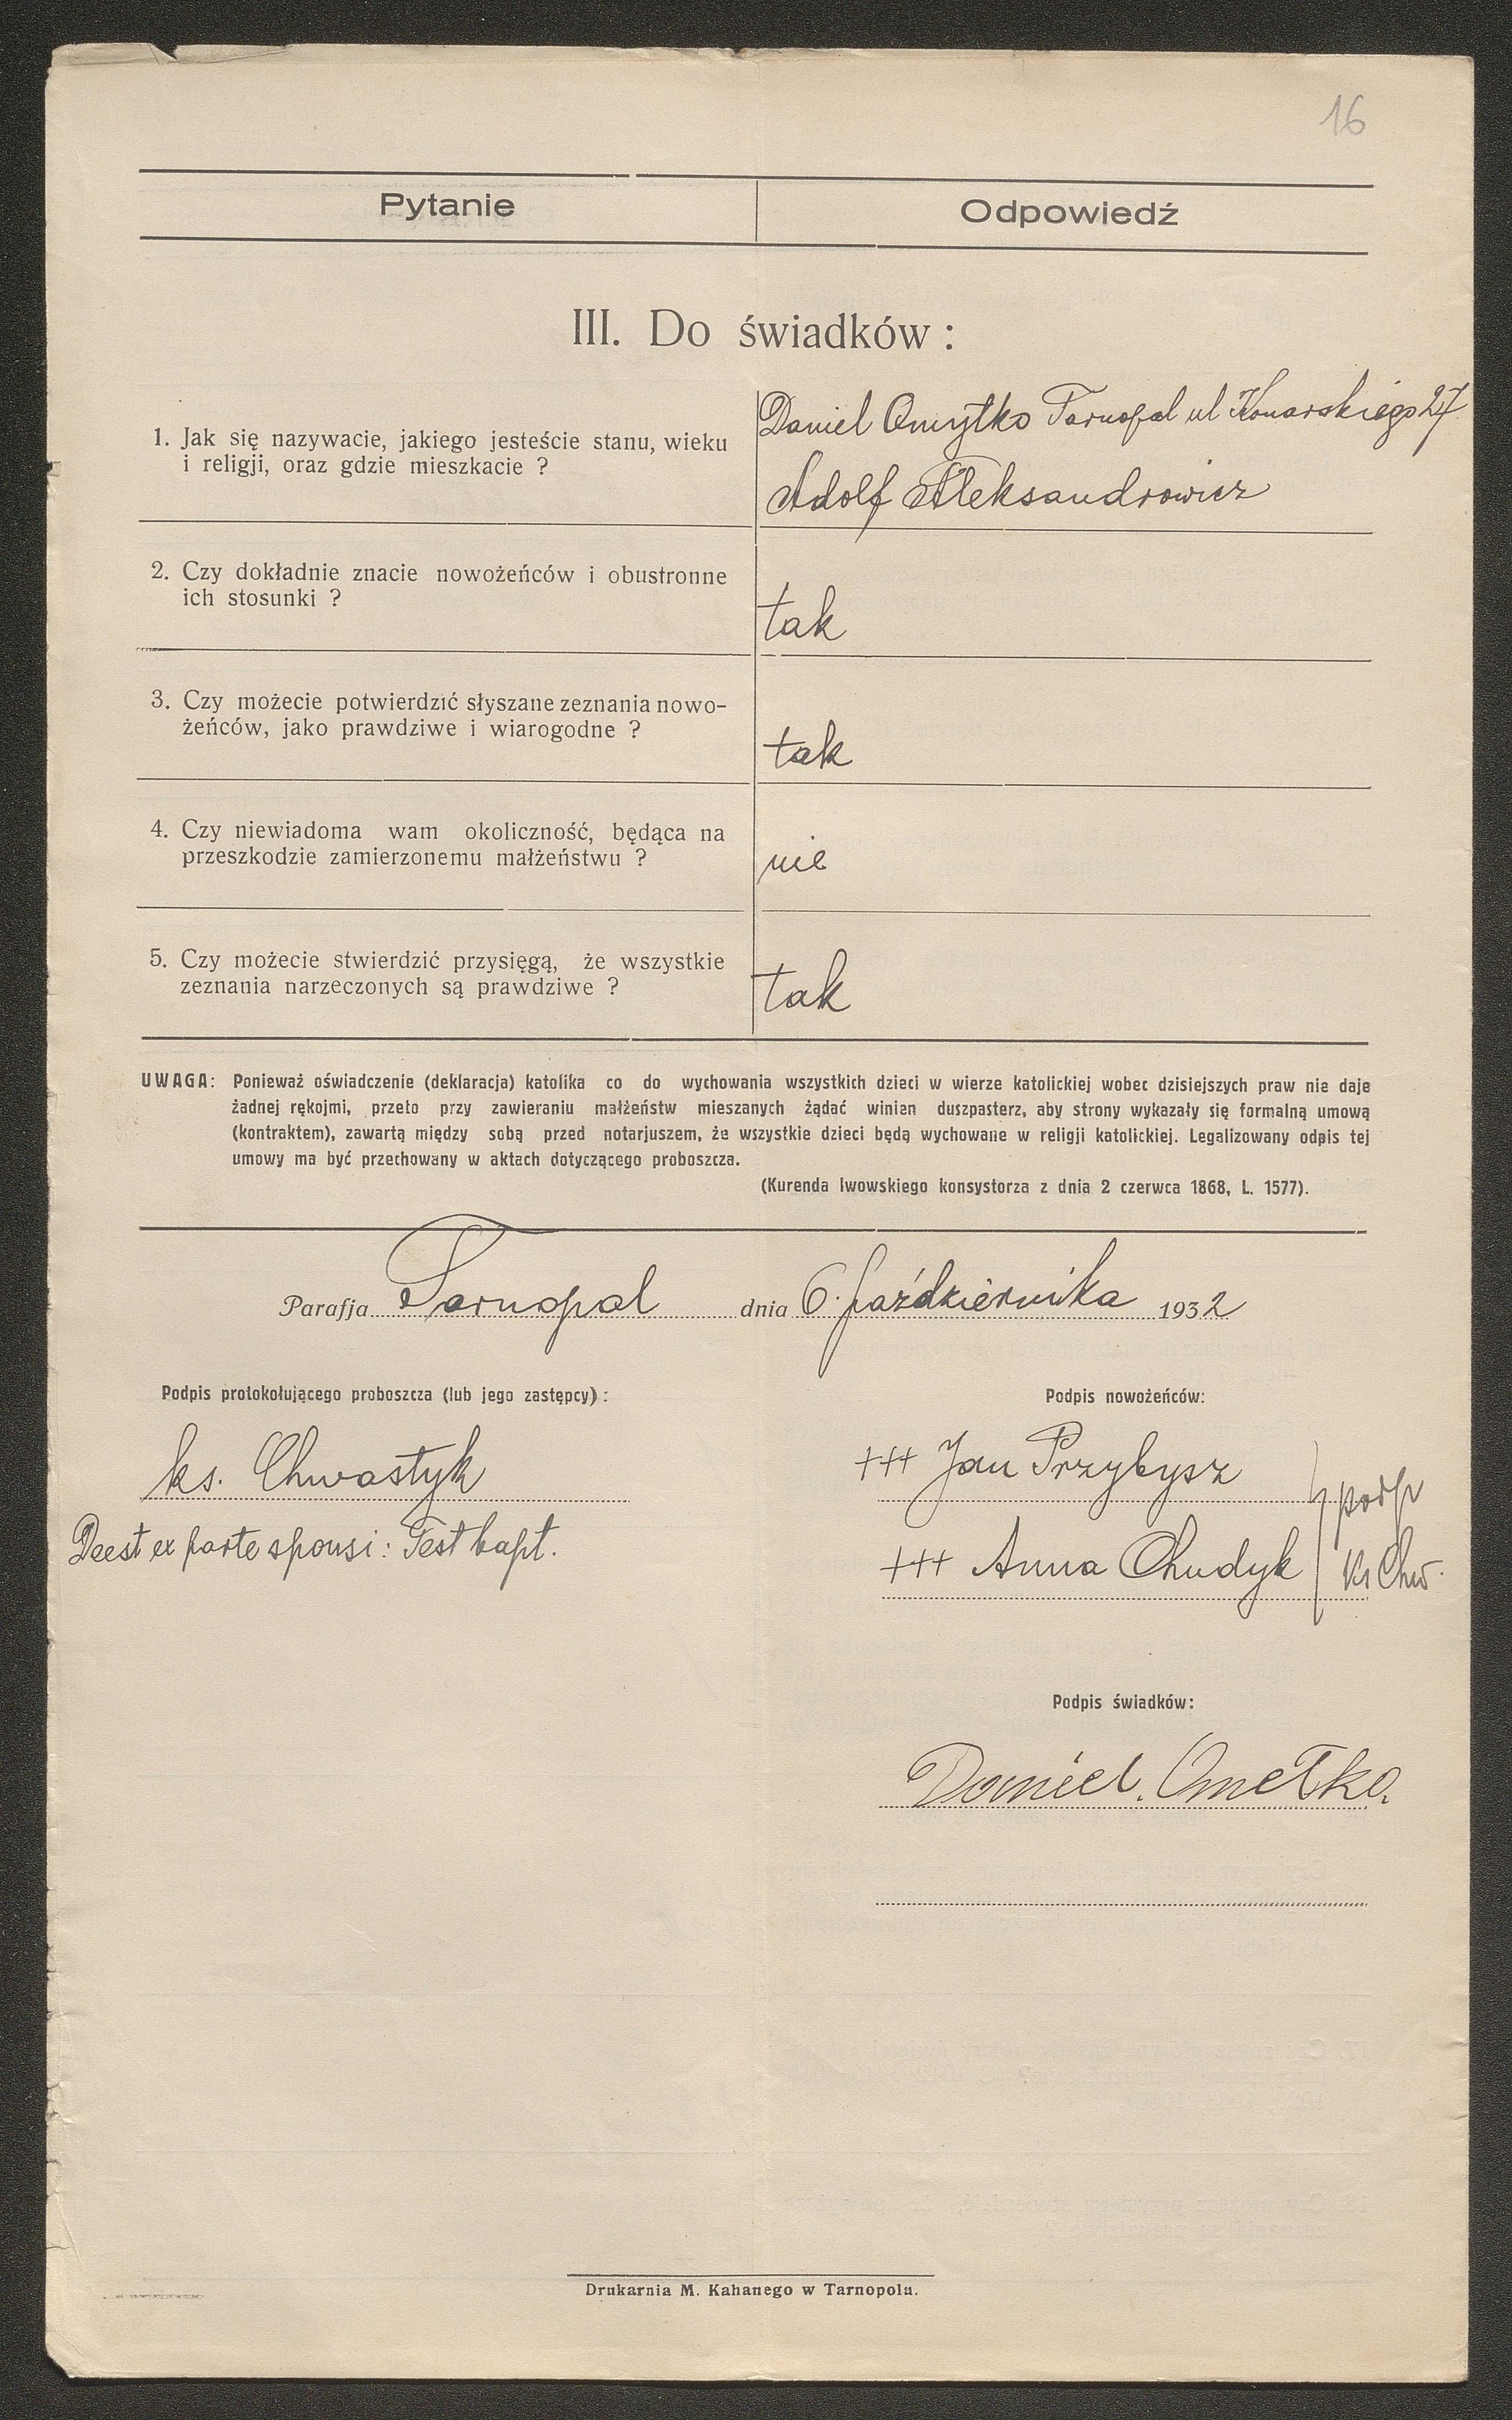 16
Pytanie
Odpowiedź
III. Do świadków :
1. Jak się nazywacie, jakiego jesteście stanu, wieku
i religji, oraz gdzie mieszkacie ?
Daniel Omytko Tarnopol ul Konarskiego 27
Adolf Aleksandrowicz
2. Czy dokładnie znacie nowożeńców i obustronne
ich stosunki ?
tak
3. Czy możecie potwierdzić słyszane zeznania nowo-
żeńców, jako prawdziwe i wiarogodne ?
tak
4. Czy niewiadoma wam okoliczność, będąca na
przeszkodzie zamierzonemu małżeństwu ?
nie
5. Czy możecie stwierdzić przysięgą, że wszystkie
zeznania narzeczonych są prawdziwe ?
tak
UWAGA: Ponieważ oświadczenie (deklaracja) katolika co do wychowania wszystkich dzieci w wierze katolickiej wobec dzisiejszych praw nie daje
żadnej rękojmi, przeto przy zawieraniu małżeństw mieszanych żądać winien duszpasterz, aby strony wykazały się formalną umową
(kontraktem), zawartą między sobą przed notarjuszem, że wszystkie dzieci będą wychowane w religji katolickiej. Legalizowany odpis tej
umowy ma być przechowany w aktach dotyczącego proboszcza.
(Kurenda lwowskiego konsystorza z dnia 2 czerwca 1868, L. 1577).
Parafja Tarnopol dnia 6. października 1932
Podpis protokołującego proboszcza (lub jego zastępcy) :
ks. Chwastyk
Deest ex parte sponsi: Test bapt.
Podpis nowożeńców:
+++ Jan Przybysz
+++ Anna Chudyk
podp
Ks Chw.
Podpis świadków:
Daniel. Ometko.
Drukarnia M. Kahanego w Tarnopolu.